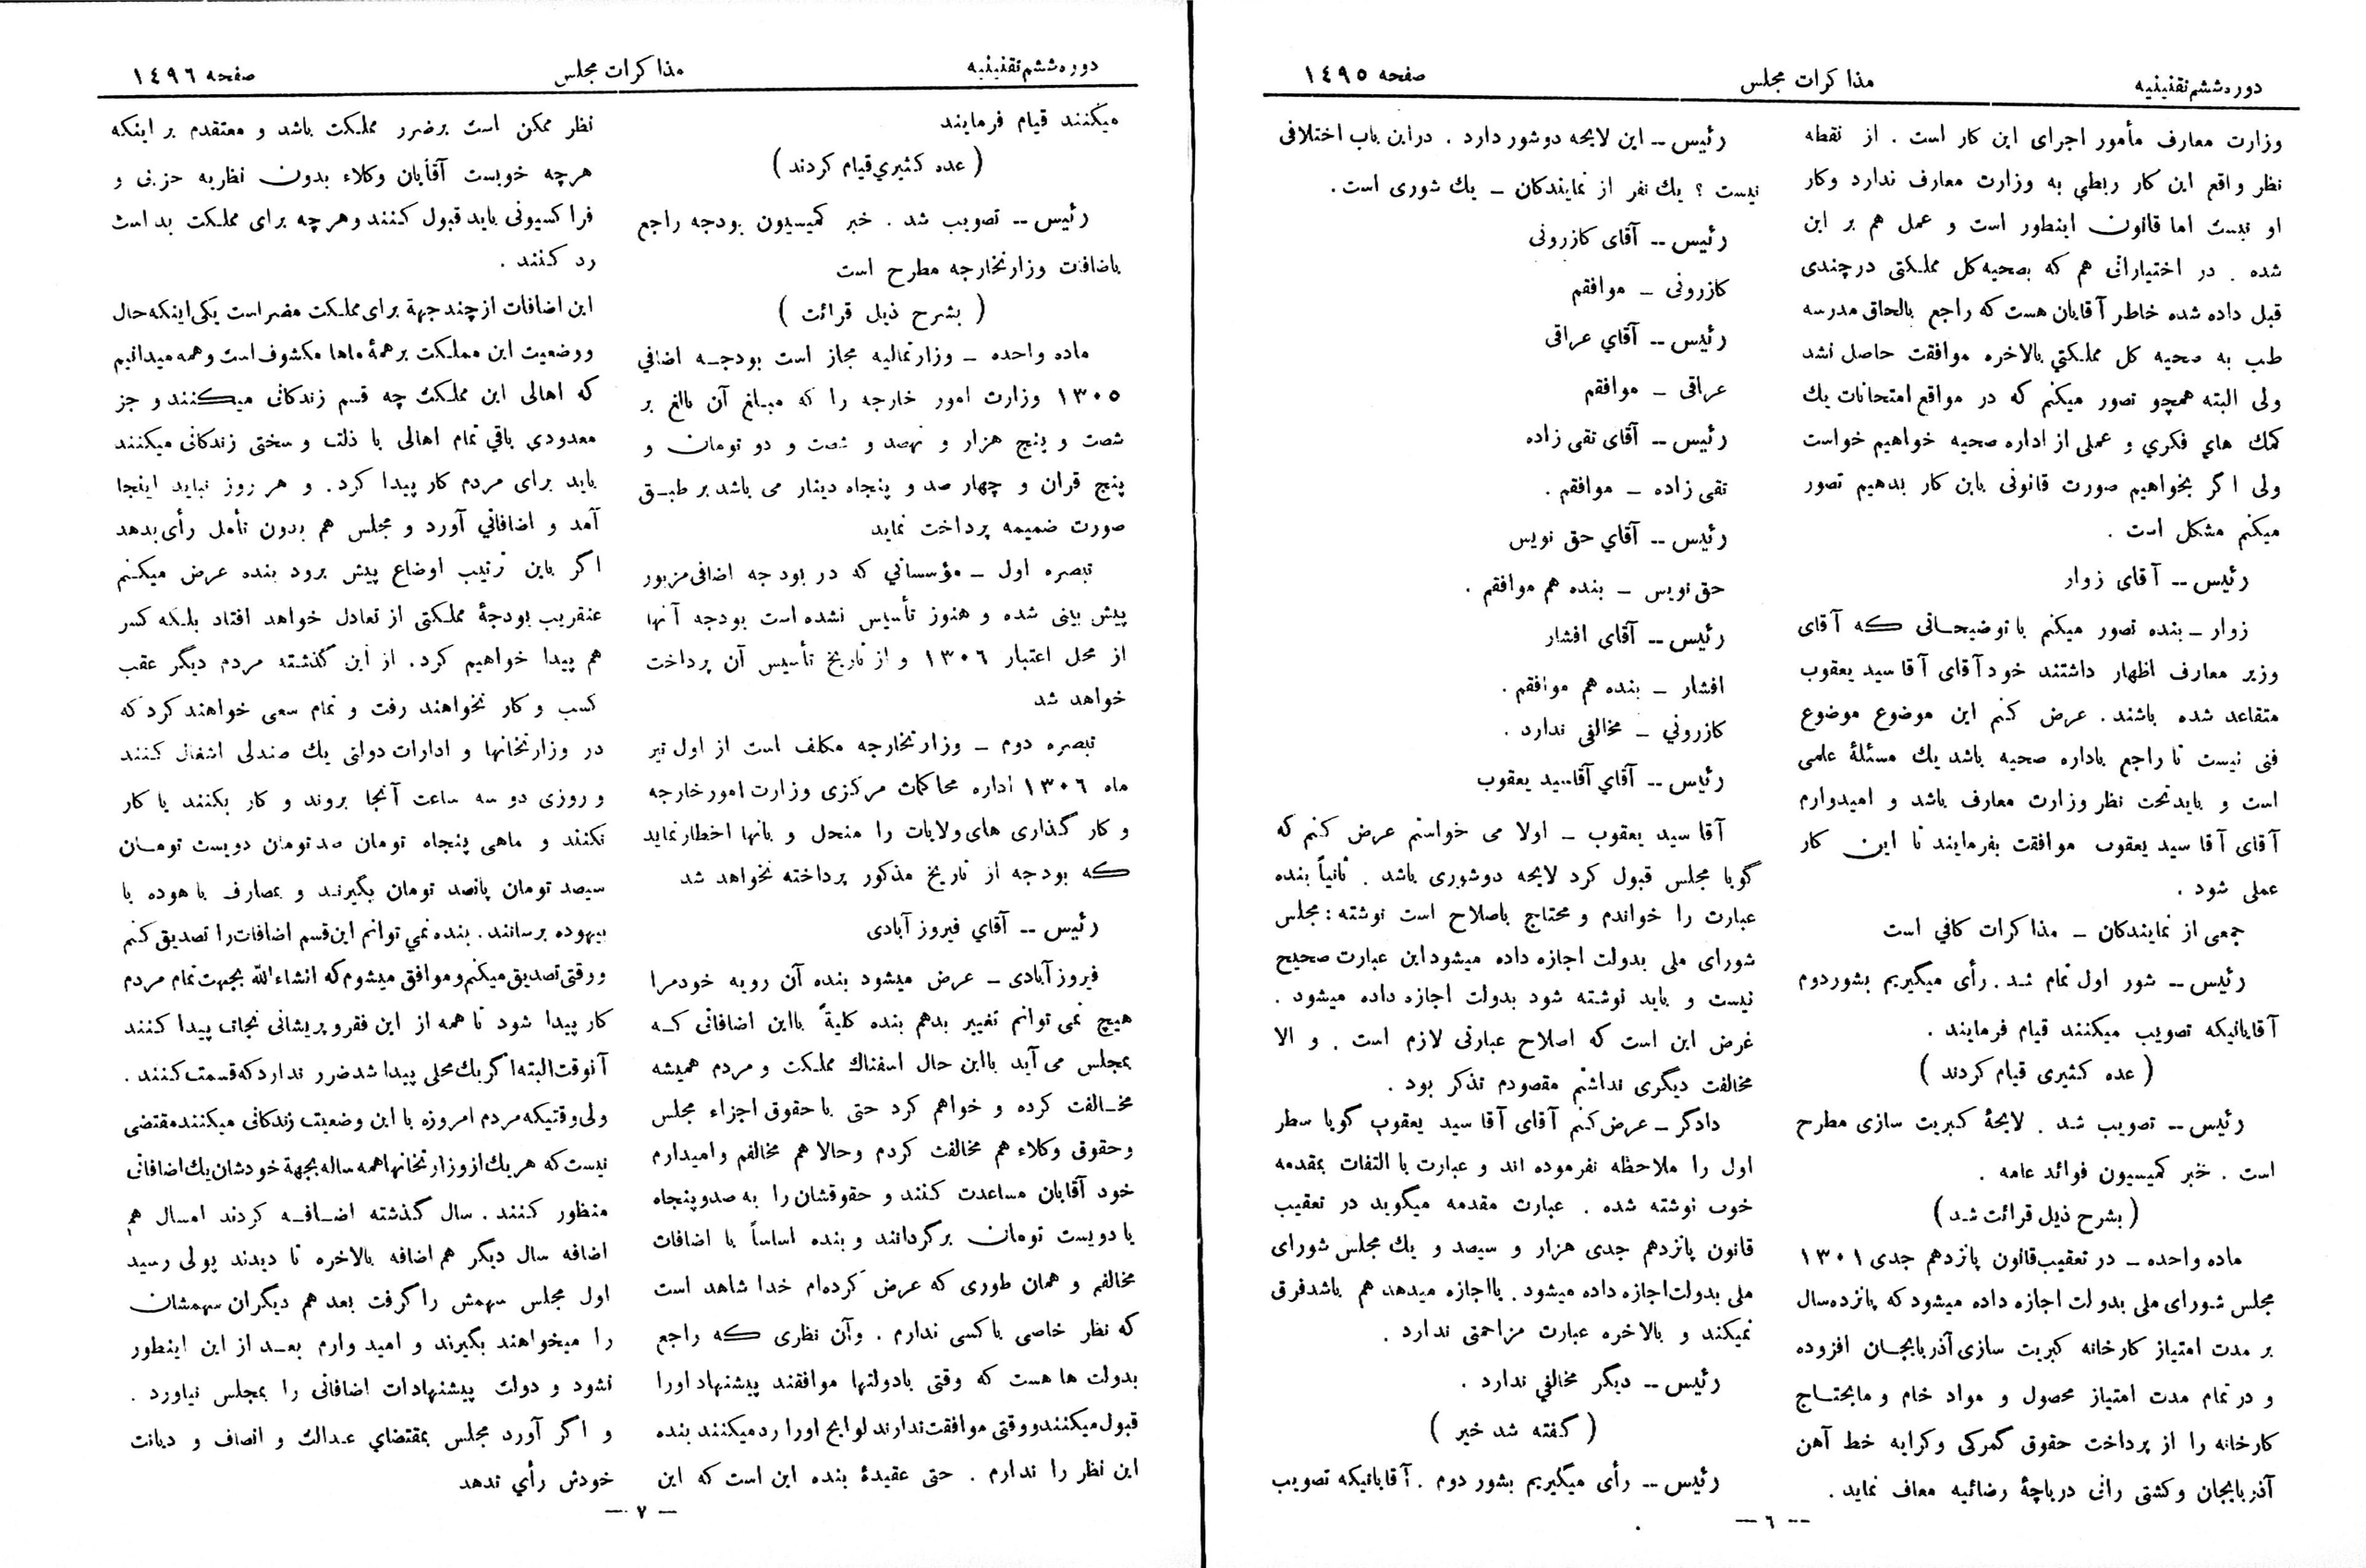 دوره ششم تقنینیه
مذاکرات مجلس
صفحه ١٤٩٥
وزارت معارف مأمور اجرای این کار است . از نقطه
نظر واقع این کار ربطی به وزارت معارف ندارد وکار
او نیست اما قانون اینطور است و عمل هم بر این
شده . در اختیاراتی هم که بصحیه کل مملکتی درچندی
قبل داده شده خاطر آقایان هست که راجع بالحاق مدرسه
طب به صحیه کل مملکتي بالاخره موافقت حاصل نشد
ولی البته همچو تصور میکنم که در مواقع امتحانات یك
کمك هاي فکري و عملی از اداره صحیه خواهیم خواست
ولی اگر بخواهیم صورت قانونی باین کار بدهیم تصور
میکنم مشکل است .
رئیس -- آقای زوار
زوار - بنده تصور میکنم با توضیحاتی که آقای
وزیر معارف اظهار داشتند خود آقای آقا سید یعقوب
متقاعد شده باشند . عرض کنم این موضوع موضوع
فنی نیست تا راجع باداره صحیه باشد یك مسئلهٔ علمی
است و باید تحت نظر وزارت معارف باشد و امیدوارم
آقای آقا سید یعقوب موافقت بفرمایند تا این کار
عملی شود .
جمعی از نمایندکان - مذاکرات کافي است
رئیس -- شور اول تمام شد . رأی میگیریم بشور دوم
آقایانیکه تصویب میکنند قیام فرمایند .
( عده کثیری قیام کردند )
رئیس -- تصویب شد . لایحهٔ کبریت سازی مطرح
است . خبر کمیسیون فوائد عامه .
( بشرح ذیل قرائت شد )
ماده واحده - در تعقیب قانون پانزدهم جدی ١٣٠١
مجلس شورای ملی بدولت اجازه داده میشود که پانزده سال
بر مدت امتیاز کارخانه کبریت سازی آذربایجان افزوده
و در تمام مدت امتیاز محصول و مواد خام و مایحتاج
کارخانه را از پرداخت حقوق گمرکی وکرایه خط آهن
آذربایجان وکشتی رانی دریاچهٔ رضائیه معاف نماید .
رئیس -- این لایحه دوشور دارد . دراین باب اختلافی
نیست ؟ یك نفر از نمایندکان - یك شوری است .
رئیس -- آقای کازرونی
کازرونی - موافقم
رئیس -- آقاي عراقی
عراقی - موافقم
رئیس -- آقای تقی زاده
تقی زاده - موافقم .
رئیس -- آقاي حق نویس
حق نویس - بنده هم موافقم .
رئیس -- آقای افشار
افشار - بنده هم موافقم .
کازروني - مخالفی ندارد .
رئیس -- آقاي آقاسید یعقوب
آقا سید یعقوب - اولا می خواستم عرض کنم که
گویا مجلس قبول کرد لایحه دوشوری باشد . ثانیاً بنده
عبارت را خواندم و محتاج باصلاح است نوشته : مجلس
شورای ملی بدولت اجازه داده میشود این عبارت صحیح
نیست و باید نوشته شود بدولت اجازه داده میشود .
غرض این است که اصلاح عبارتی لازم است . و الا
مخالفت دیگری نداشتم مقصودم تذکر بود .
دادگر - عرض کنم آقای آقا سید یعقوب گویا سطر
اول را ملاحظه نفرموده اند و عبارت با التفات بمقدمه
خوب نوشته شده . عبارت مقدمه میگوید در تعقیب
قانون پانزدهم جدی هزار و سیصد و یك مجلس شورای
ملی بدولت اجازه داده میشود . یا اجازه میدهد هم باشد فرق
نمیکند و بالاخره عبارت مزاحمتی ندارد .
رئیس -- دیگر مخالفي ندارد .
( کفته شد خیر )
رئیس -- رأی میگیریم بشور دوم . آقایانیکه تصویب
-- ٦ --
دوره ششم تقنینیه
مذاکرات مجلس
صفحه ١٤٩٦
میکنند قیام فرمایند
( عده کثیري قیام کردند )
رئیس -- تصویب شد . خبر کمیسیون بودجه راجع
باضافات وزارتخارجه مطرح است
( بشرح ذیل قرائت )
ماده واحده - وزارتمالیه مجاز است بودجه اضافي
١٣٠٥ وزارت امور خارجه را که مبلغ آن بالغ بر
شصت و پنج هزار و نهصد و شصت و دو تومان و
پنج قران و چهار صد و پنجاه دینار می باشد بر طبق
صورت ضمیمه پرداخت نماید
تبصره اول - مؤسساتي که در بودجه اضافی مزبور
پیش بینی شده و هنوز تأسیس نشده است بودجه آنها
از محل اعتبار ١٣٠٦ و از تاریخ تأسیس آن پرداخت
خواهد شد
تبصره دوم - وزارتخارجه مکلف است از اول تیر
ماه ١٣٠٦ اداره محاکمات مرکزی وزارت امور خارجه
و کار گذاری های ولایات را منحل و بانها اخطار نماید
که بودجه از تاریخ مذکور پرداخته نخواهد شد
رئیس -- آقاي فیروز آبادی
فیروز آبادی - عرض میشود بنده آن رویه خودم را
هیچ نمی توانم تغییر بدهم بنده کلیةً بااین اضافاتی که
بمجلس می آید بااین حال اسفناك مملکت و مردم همیشه
مخالفت کرده و خواهم کرد حتی با حقوق اجزاء مجلس
وحقوق وکلاء هم مخالفت کردم وحالا هم مخالفم و امیدارم
خود آقایان مساعدت کنند و حقوقشان را به صد و پنجاه
یا دویست تومان برگردانند و بنده اساساً با اضافات
مخالفم و همان طوری که عرض کرده ام خدا شاهد است
که نظر خاصی باکسی ندارم . وآن نظری که راجع
بدولت ها هست که وقتی بادولتها موافقند پیشنهاد اورا
قبول میکنند و وقتی موافقت ندارند لوایح اورا رد میکنند بنده
این نظر را ندارم . حتی عقیدهٔ بنده این است که این
نظر ممکن است برضرر مملکت باشد و معتقدم بر اینکه
هرچه خوبست آقایان وکلاء بدون نظریه حزبی و
فراکسیونی باید قبول کنند وهرچه برای مملکت بد است
رد کنند .
این اضافات از چند جهة برای مملکت مضر است یکی اینکه حال
ووضعیت این مملکت بر همهٔ ماها مکشوف است وهمه میدانیم
که اهالی این مملکت چه قسم زندکانی میکنند و جز
معدودي باقي تمام اهالی با ذلت و سختی زندکانی میکنند
باید برای مردم کار پیدا کرد . و هر روز نباید اینجا
آمد و اضافاتي آورد و مجلس هم بدون تأمل رأی بدهد
اگر باین ترتیب اوضاع پیش برود بنده عرض میکنم
عنقریب بودجهٔ مملکتی از تعادل خواهد افتاد بلکه کسر
هم پیدا خواهیم کرد . از این گذشته مردم دیگر عقب
کسب و کار نخواهند رفت و تمام سعی خواهند کرد که
در وزارتخانها و ادارات دولتی یك صندلی اشغال کنند
و روزی دو سه ساعت آنجا بروند و کار بکنند یا کار
نکنند و ماهی پنجاه تومان صد تومان دویست تومان
سیصد تومان پانصد تومان بگیرند و بمصارف با هوده یا
بیهوده برسانند . بنده نمي توانم این قسم اضافات را تصدیق کنم
و رقتی تصدیق میکنم و موافق میشوم که انشاءالله بجهت تمام مردم
کار پیدا شود تا همه از این فقر و پریشانی نجات پیدا کنند
آنوقت البته اگر یك محلی پیدا شد ضرر ندارد که قسمت کنند .
ولی وقتیکه مردم امروزه با این وضعیت زندکانی میکنند مقتضی
نیست که هر یك از وزارتخانها همه ساله بجهة خودشان یك اضافاتی
منظور کنند . سال گذشته اضافه کردند امسال هم
اضافه سال دیگر هم اضافه بالاخره تا دیدند پولی رسید
اول مجلس سهمش را گرفت بعد هم دیگران سهمشان
را میخواهند بگیرند و امید وارم بعد از این اینطور
نشود و دولت پیشنهادات اضافاتی را بمجلس نیاورد .
و اگر آورد مجلس بمقتضاي عدالت و انصاف و دیانت
خودش رأي ندهد
-- ٧ --